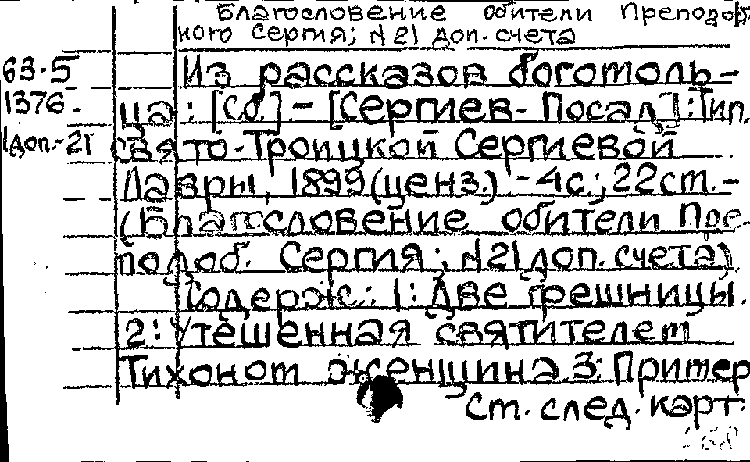 Благословение обители Преподоб-
ного Сергия; N 21 доп. счета
63-5 Из рассказов богомоль-
1376- ца: [Сб.] - [Сергиев-Посад]: Тип.
1доп.-21 Свято-Троицкой Сергиевой
Лавры, 1899 (ценз.) - 4с.; 22см. -
(Благословение обители Пре-
подоб. Сергия; N 21 доп. счета)
Содерж.: 1: Две грешницы.
2: Утешенная святителем
Тихоном женщина. 3: Пример
См. след. карт.